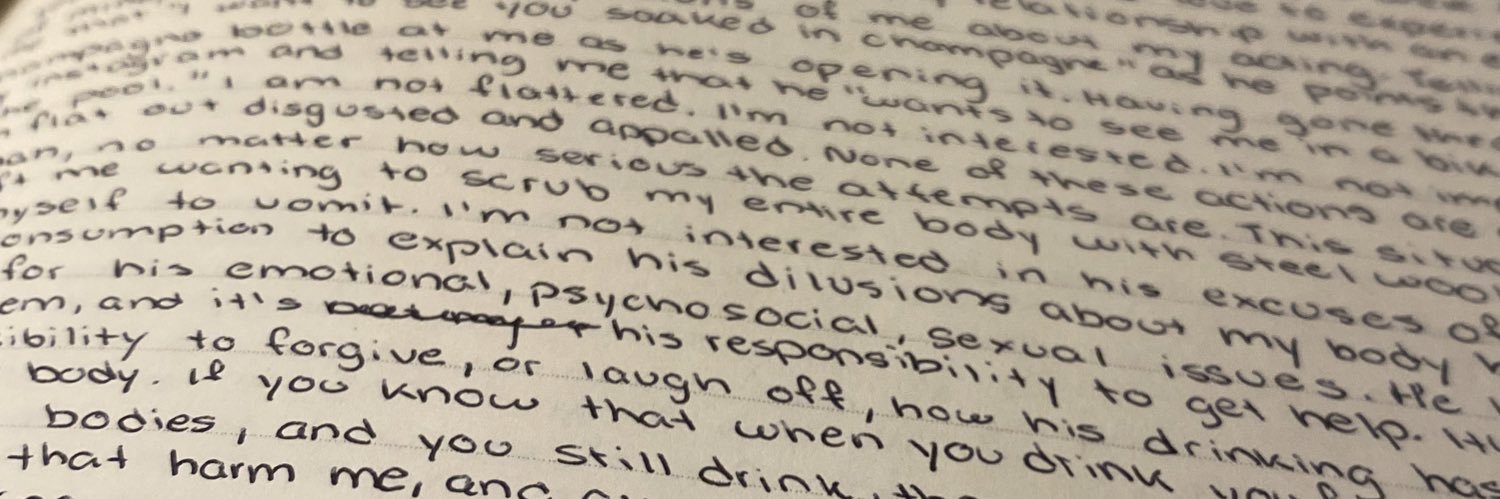 to
relationship with an
of me about my acting.
want to see you soaked in champagne" as he points
bottle at me as he's opening it. Having gone
and telling me that he "wants to see me in a
pool." I am not flattered. I'm not interested. I'm not
flat out disgusted and appalled. None of these actions are
an, no matter how serious the attempts are. This situ
me wanting to scrub my entire body with steel wool
yself to vomit. I'm not interested in his excuses of
onsumption to explain his dilusions about my body
for his emotional, psychosocial, sexual issues. He
em, and it's his responsibility to get help. It
ibility to forgive, or laugh off, how his drinking has
body. If you know that when you drink
bodies, and you still drink, th
that harm me, and